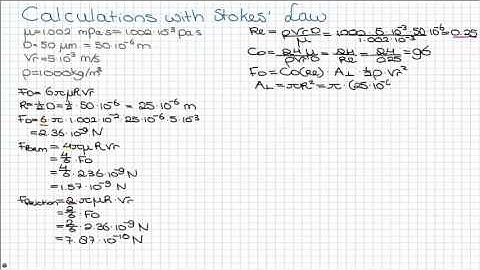 Calculations with Stokes' Law
μ=1.002 mPa s=1.002·10⁻³ Pa s
D=50 μm = 50·10⁻⁶ m
Vr=5·10⁻³ m/s
ρ=1000kg/m³
FD= 6πμRVr
R=½D=½·50·10⁻⁶ = 25·10⁻⁶ m
FD=6·π·1.002·10⁻³·25·10⁻⁶·5·10⁻³
=2.36·10⁻⁹ N
= 4πμRVr
= 4/6·FD
= 4/6·2.36·10⁻⁹ N
= 1.57·10⁻⁹ N
= 2πμR·Vr
= 2/6·FD
= 2/6·2.36·10⁻⁹ N
= 7.87·10⁻¹⁰ N
Re= ρVrD/μ = 1000·5·10⁻³·50·10⁻⁶/1.002·10⁻³=0.25
CD= 24μ/ρVrD = 24/Re = 24/0.25 = 96
FD=CD(Re)·A⊥·½ρVr²
A⊥=πR²=π·(25·10⁻⁶